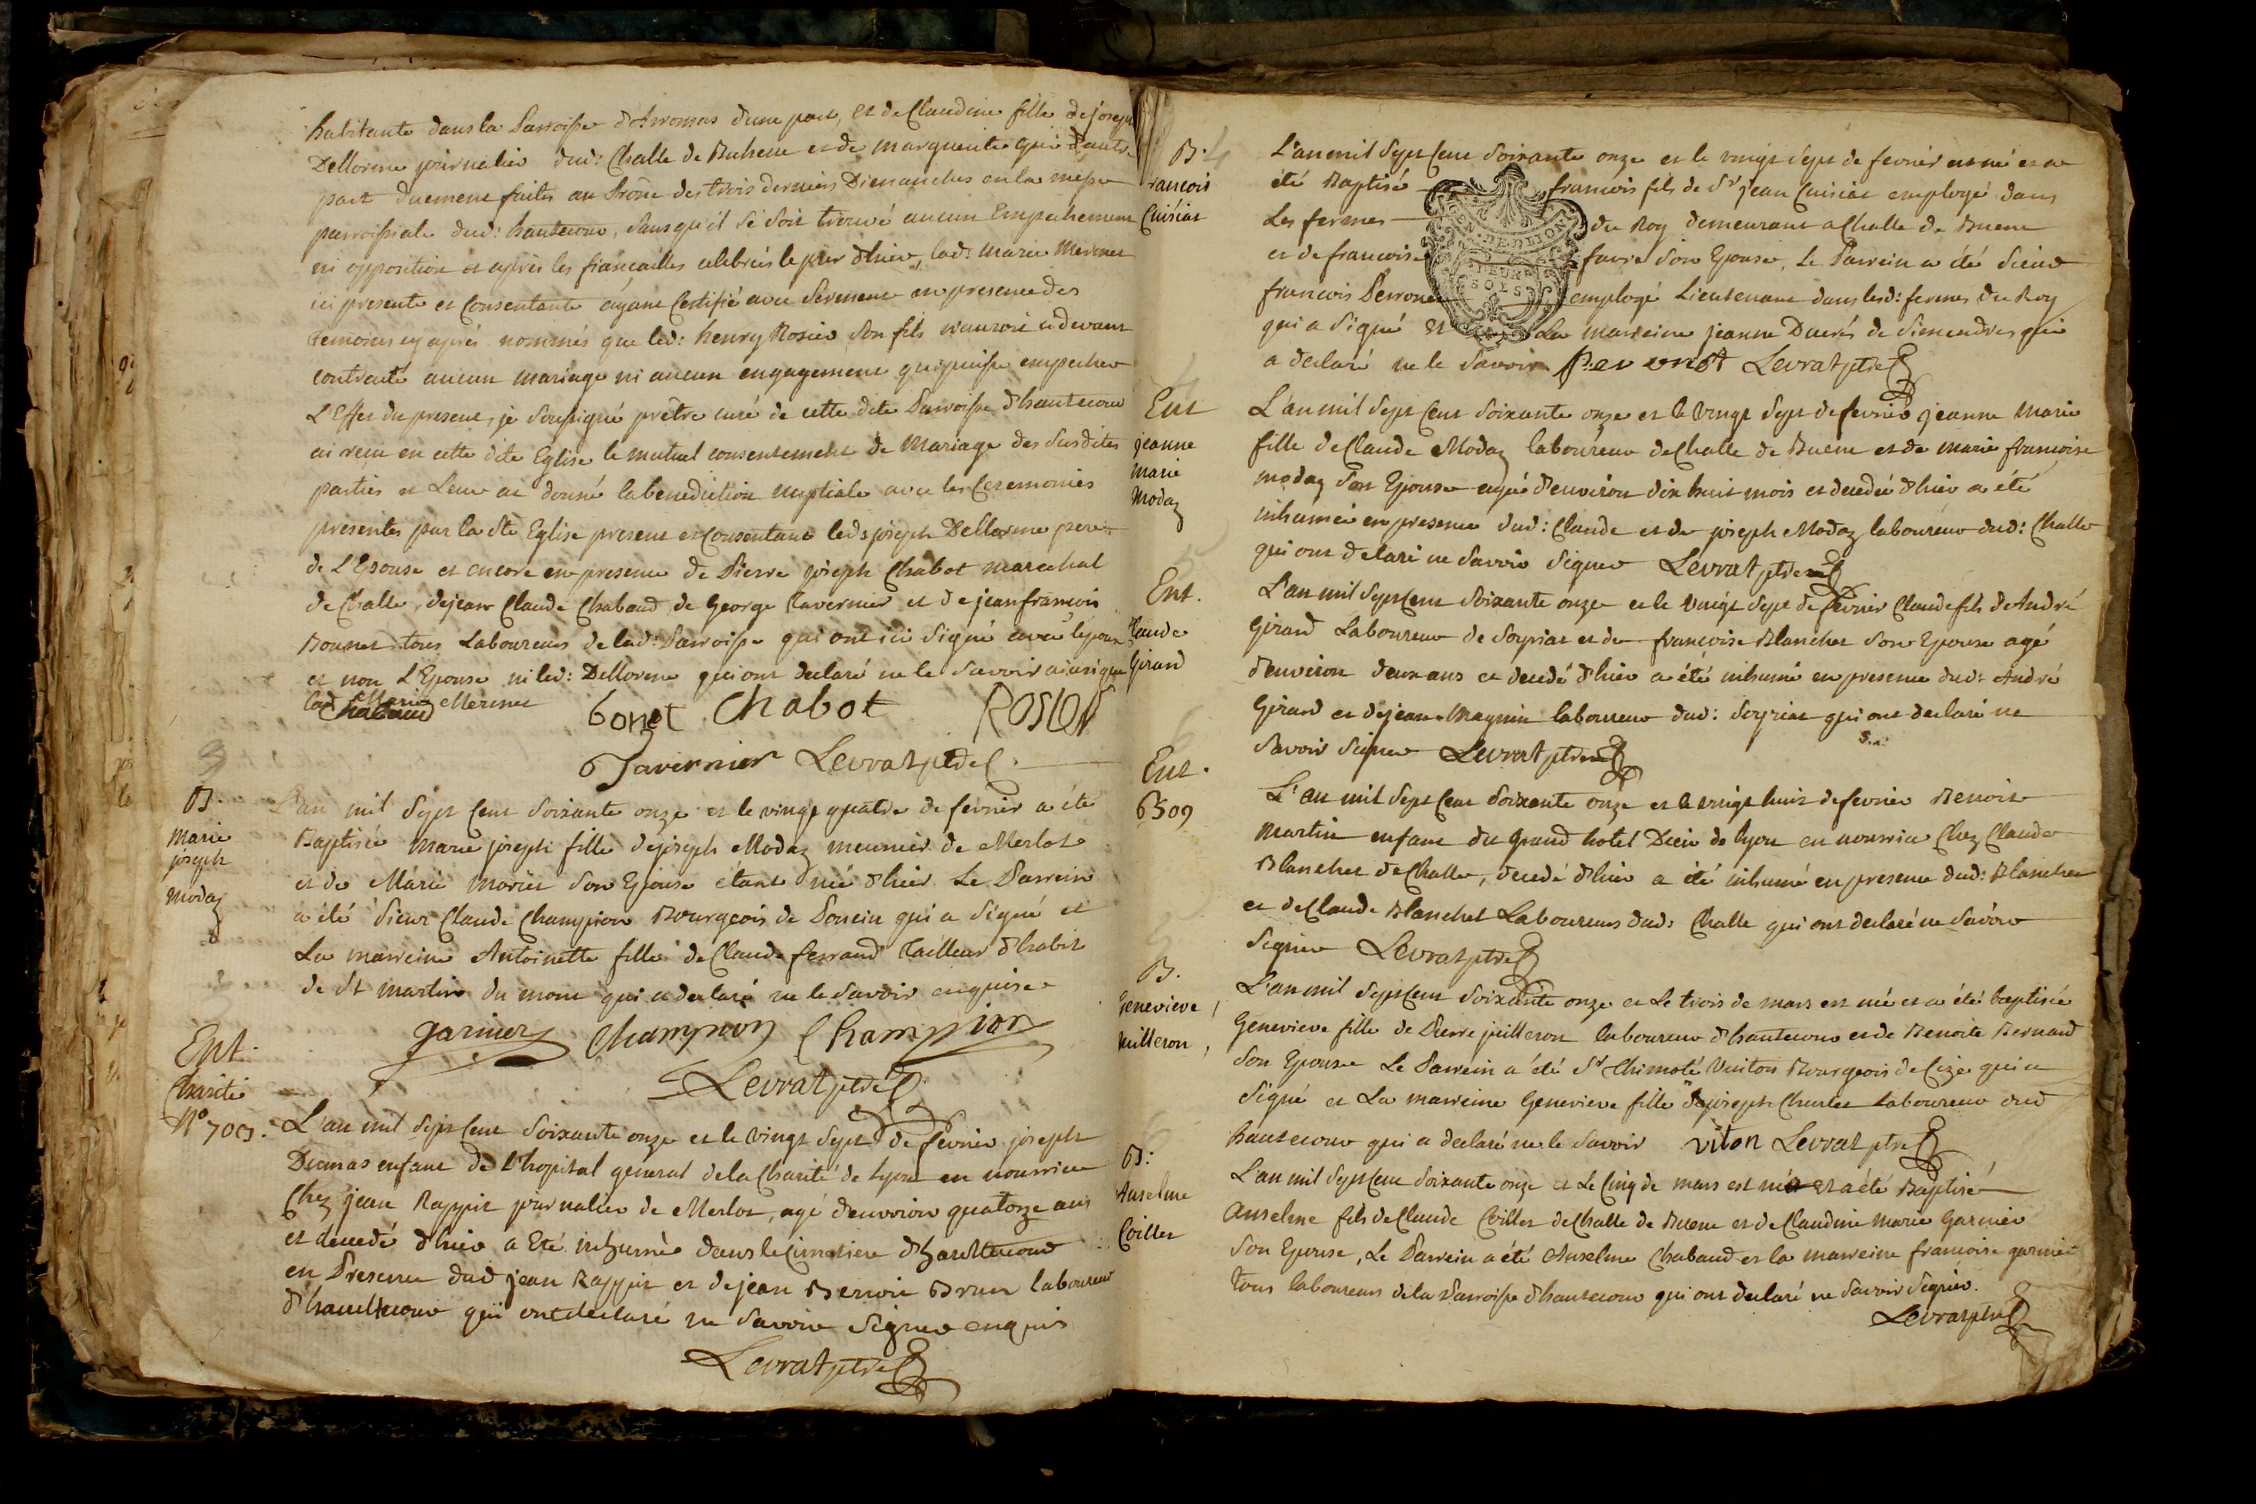 habitante dans la Parroisse d'Arromas d'une part, et de Claudine fille de joseph
Dellorme journalier dud: Challe de Buhene et de marguerite d'autre
part duement faites au Prône des trois derniers Dimanches en la messe
parroissiale dud: hautecour, sans qu'il se soit trouvé aucun Empechement
ni opposition et après les fiançailles celebrés le jour d'hier, lad: marie Mermet
ici presente et Consentante ayant Certifié avec Serment en presence des
temoins cy aprés nommés que led: henry Rosier son fils n'auroit cidevant
contracté aucun mariage ni aucun engagement qui puisse empecher
L'Effet du present, je soussigné prêtre curé de cette dite Parroisse d'hautecour
ai reçu en cette dite Eglise le mutuel consentement de Mariage des susdites
parties et Leur ai donné la benediction nuptiale avec les Ceremonies
presentes par la Ste Eglise present et Consentant led: joseph Dellorme pere
de L'Epouse et encore en presence de Pierre joseph Chabot marechal
de Challe, de jean Claude Chabaud de George Tavernier et de jean françois
Bonnet tous Laboureurs de lad: Parroisse qui ont ici signé avec l'époux
et non L'Epouse ni led: Dellorme qui ont declaré ne le savoir ainsi que
lad: Marie Mermet
Chabaud bonet Chabot ROSIER
Tavernier Levrat ptre
B.
Marie
joseph
Modaz
L'an mil sept cent soixante onze et le vingt quatre de fevrier a été
Baptisée Marie joseph fille de joseph Modaz meunier de Merlot
et de Marie Morier son Epouse étant née d'hier Le Parrein
a été Sieur Claude Champion Bourgeois de Poncin qui a signé et
La marreine Antoinette fille de Claude ferrand Tailleur d'habit
de St martin du mont qui a declaré ne le savoir enquise
garnier Champion Champion
Levrat ptre
Ent.
Charité
N° 703.
L'an mil sept cent soixante onze et le vingt sept de fevrier joseph
Dumas enfant de L'hopital general de la Charité de Lyon en nourrice
Chez jean Rappit journalier de Merlot, agé d'environ quatorze ans
et decedé d'hier a Eté inhumé dans le Cimetiere d'hautecour
en Presence dud jean Rappit et de jean Benoit Brun laboureur
d'hautecour qui ont declaré ne savoir signer enquis
Levrat ptre
B.
françois
Cuisiat
L'an mil sept cent soixante onze et le vingt sept de fevrier est né et a
été Baptisé françois fils de Sr jean Cuisiat employé dans
Les fermes du Roy demeurant a Challe de Buene
et de françoise favre son Epouse, Le Parrein a été Sieur
françois Perronet employé Lieutenant dans lesd: fermes du Roy
qui a signé et La marreine jeanne Ducrés de Simandres qui
a declaré ne le savoir Peronet Levrat ptre
Ent
jeanne
Marie
Modaz
L'an mil sept cent soixante onze et le vingt sept de fevrier jeanne Marie
fille de Claude Modaz laboureur de Challe de Buene et de marie françoise
modaz son Epouse agée d'environ dix huit mois et decedée d'hier a été
inhumée en presence dud: Claude et de joseph Modaz laboureur dud: Challe
qui ont declaré ne savoir signer Levrat ptre
Ent.
Claude
Girard
L'an mil sept cent soixante onze et le vingt sept de fevrier Claude fils de André
Girard Laboureur de Soyriat et de françoise Blanchet son Epouse agé
d'environ deux ans et decedé d'hier a été inhumé en presence dud: André
Girard et de jean Magnin laboureur dud: Soyriat qui ont declaré ne
savoir signer Levrat ptre
Ent.
6509
L'an mil sept cent soixante onze et le vingt huit de fevrier Benoit
Martin enfant du grand hotel Dieu de Lyon en nourrice Chez Claude
Blanchet de Challe, decedé d'hier a été inhumé en presence dud: Blanchet
et de Claude Blanchet Laboureurs dud: Challe qui ont declaré ne savoir
signer Levrat ptre
B.
Genevieve
juilleron
L'an mil sept cent soixante onze et Le trois de mars est née et a été baptisée
Genevieve fille de Pierre juilleron laboureur d'hautecour et de Benoite Bernard
son Epouse Le Parrein a été Sr Thimoté Viriton Bourgeois de Cize qui a
signé et La marreine Genevieve fille de joseph Charlet Laboureur dud
hautecour qui a declaré ne le savoir viton Levrat ptre
B:
Anselme
Coillet
L'an mil sept cent soixante onze et Le Cinq de mars est né et a été Baptisé
Anselme fils de Claude Coillet de Challe de Buene et de Claudine Marie Garnier
son Epouse, Le Parrein a été Anselme Chabaud et la marreine françoise garnier
tous laboureurs de la Parroisse d'hautecour qui ont declaré ne savoir signer.
Levrat ptre